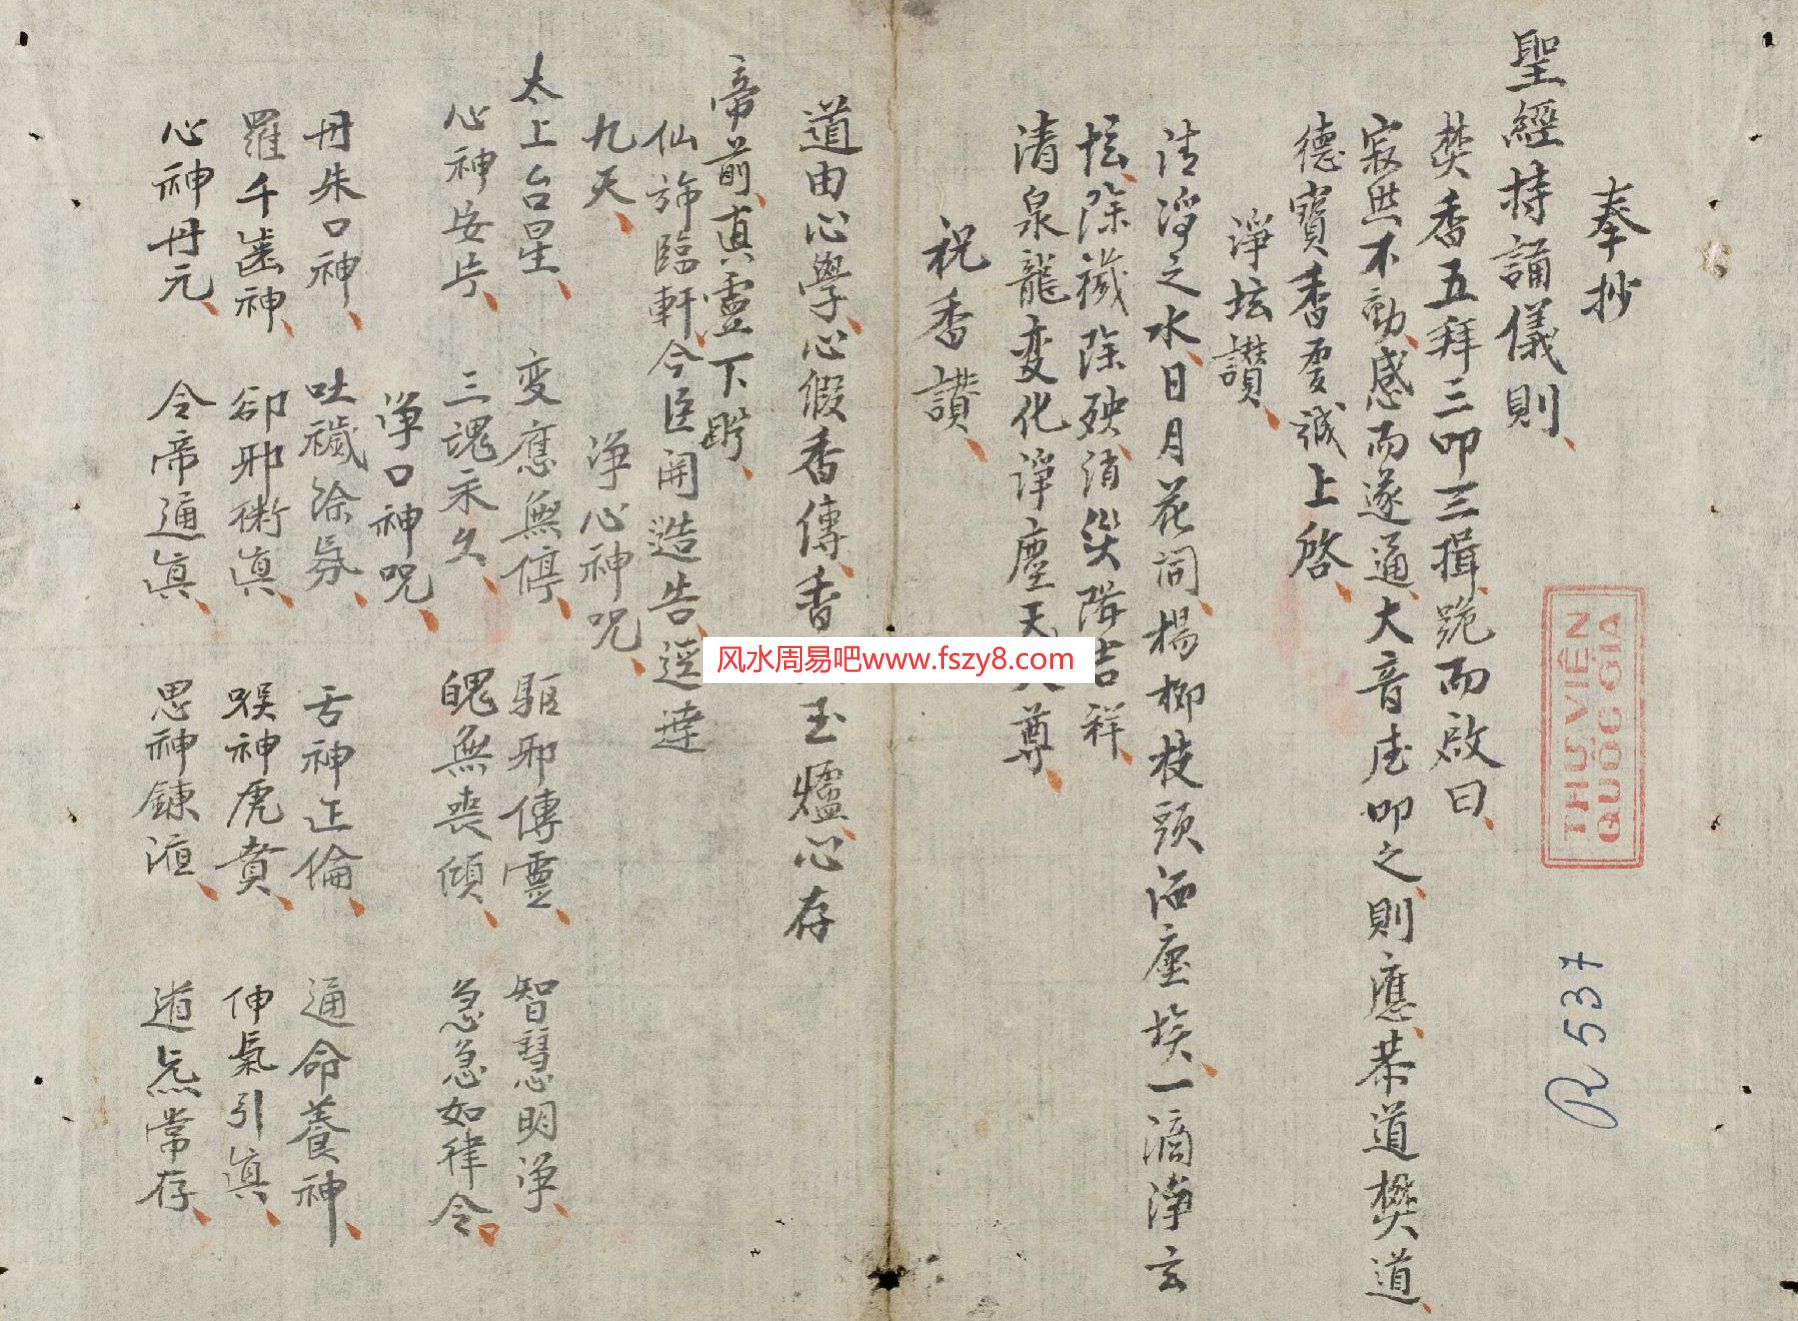 奉抄
聖經持誦儀則、
焚香五拜三叩三揖、跪而啟曰、
寂然不動、感而遂通、大音希叩之、則應、恭道焚道、
德寶香虔誠上啓、
淨坛讃、
清淨之水、日月花同、楊柳枝頭洒塵埃、一滴淨玄
坛、除穢除殃、消災降吉祥、
清泉龍変化淨塵天尊、
祝香讃、
道由心學、心假香傳、香玉爐、心存
帝前、真霊下盻、
仙斾臨軒、今臣開造告、逕達
九天、
淨心神咒、
太上台星、変應無停、駆邪傳霊、智慧明淨、
心神安片、三魂永久、魄無喪傾、急急如律令、
淨口神咒、
丹朱口神、吐穢除氛、舌神正倫、通命養神、
羅千齒神、卻邪術眞、喉神虎賁、伸氣引眞、
心神丹元、令帝通眞、思神錬液、道炁常存、
THƯ VIỆN
QUỐC GIA
R 537
风水周易吧www.fszy8.com